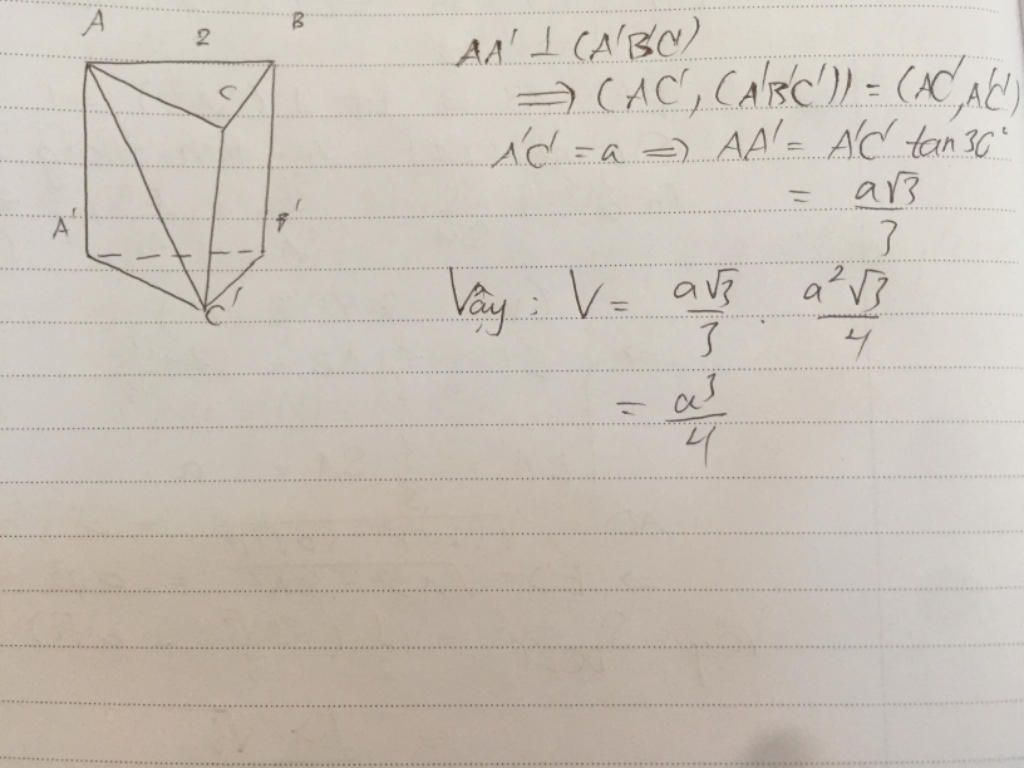 A 2 B
C
A'
B'
C'
AA' ⊥ (A'B'C')
⟹ (AC', (A'B'C')) = (AC', A'C')
A'C' = a ⟹ AA' = A'C' tan 30°
= a√3/3
Vậy : V = a√3/3 . a²√3/4
= a³/4